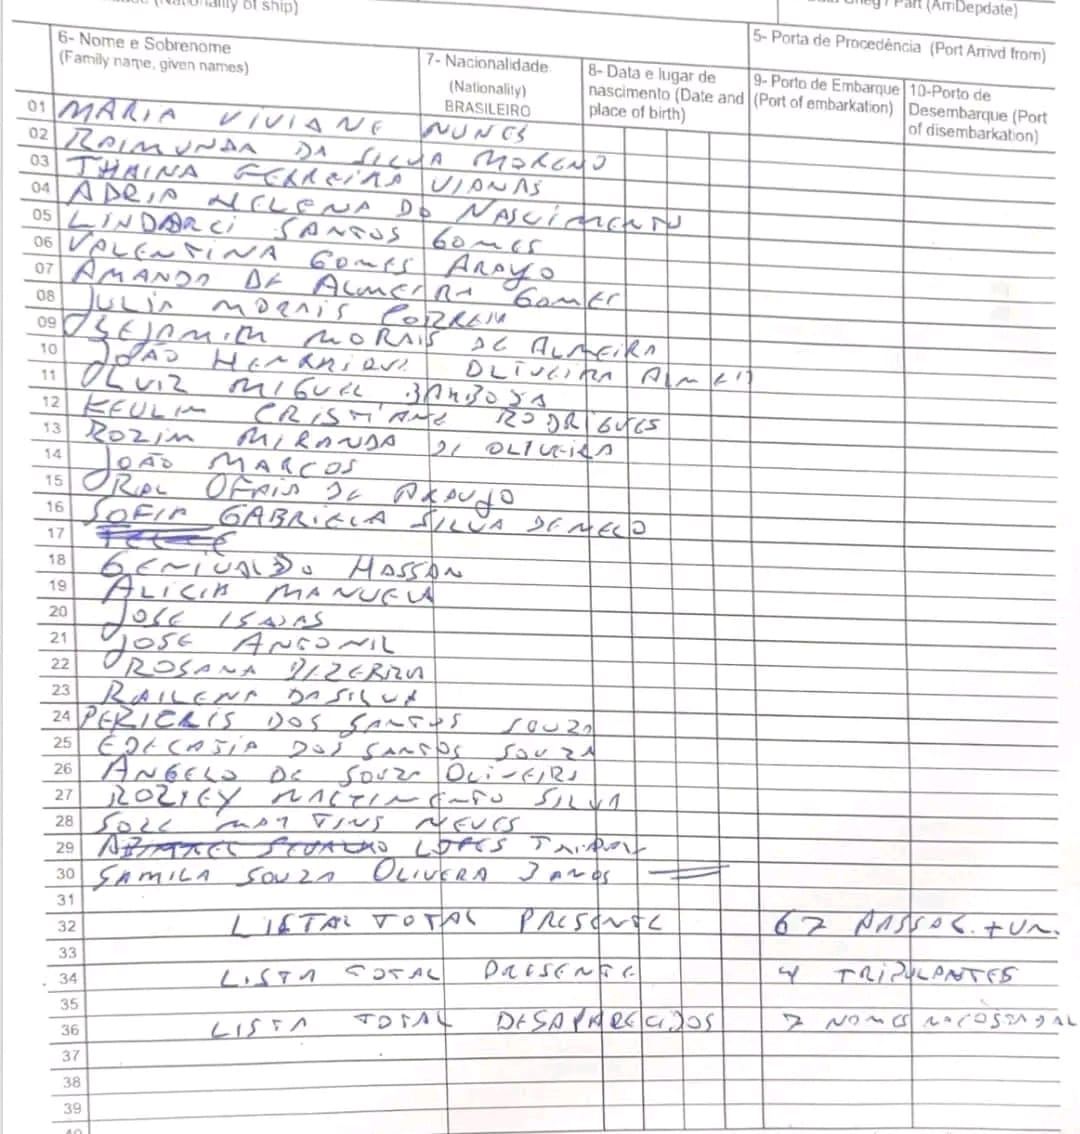 (Nationality of ship)
Part (Arr/Depdate)
5- Porta de Procedência (Port Arrivd from)
6- Nome e Sobrenome
(Family name, given names)
7- Nacionalidade
(Nationality)
BRASILEIRO
8- Data e lugar de
nascimento (Date and
place of birth)
9- Porto de Embarque
(Port of embarkation)
10-Porto de
Desembarque (Port
of disembarkation)
01 MARIA VIVIANE NUNES
02 RAIMUNDA DA SILVA MORENO
03 THAINA FERREIRA VIANAS
04 ADRIA HELENA DO NASCIMENTO
05 LINDARCI SANTOS GOMES
06 VALENTINA GOMES ARAUJO
07 AMANDA DE ALMEIRA GOMES
08 JULIA MORAIS CORREIA
09 MORAIS DE ALMEIRA
10 JOÃO HENRRIQUE OLIVEIRA
11 LUIZ MIGUEL BARBOSA
12 KEULIM CRISTIANE RODRIGUES
13 MIRANDA DE OLIVEIRA
14 JOÃO MARCOS
15 DE ARAUJO
16 SOFIA GABRIELA SILVA DE MELO
17
18 GENIVALDO HASSAN
19 ALICIA MANUELA
20 JOSE ISAIAS
21 JOSE
22 ROSANA BIZERRA
23 RAILENA DA SILVA
24 DOS SANTOS SOUZA
25 DOS SANTOS SOUZA
26 ANGELO DE SOUZA OLIVEIRA
27 SILVA
28 NEVES
29 LOPES
30 SAMILA SOUZA OLIVERA 3 ANOS
31
32 LISTAL TOTAL PRESENTE 67
33
34 LISTA TOTAL PRESENTE 4 TRIPULANTES
35
36 LISTA TOTAL DESAPARECIDOS 7 NOMES
37
38
39
40